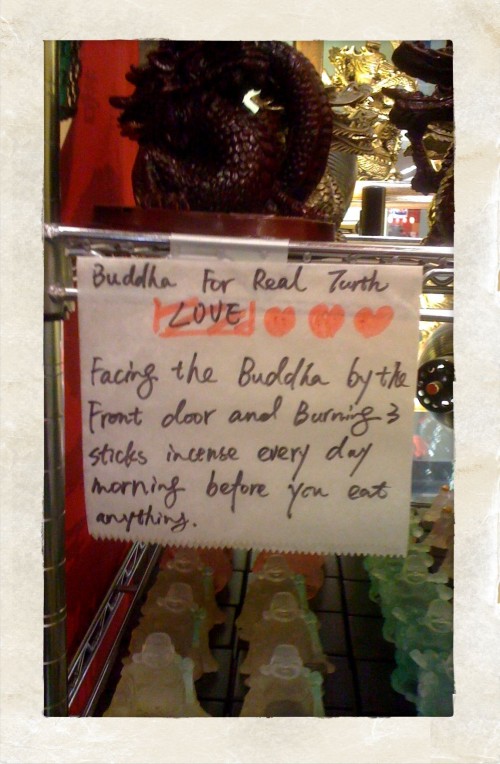 Buddha For Real Turth
LOVE
Facing the Buddha by the
Front door and Burning 3
sticks incense every day
morning before you eat
anything.